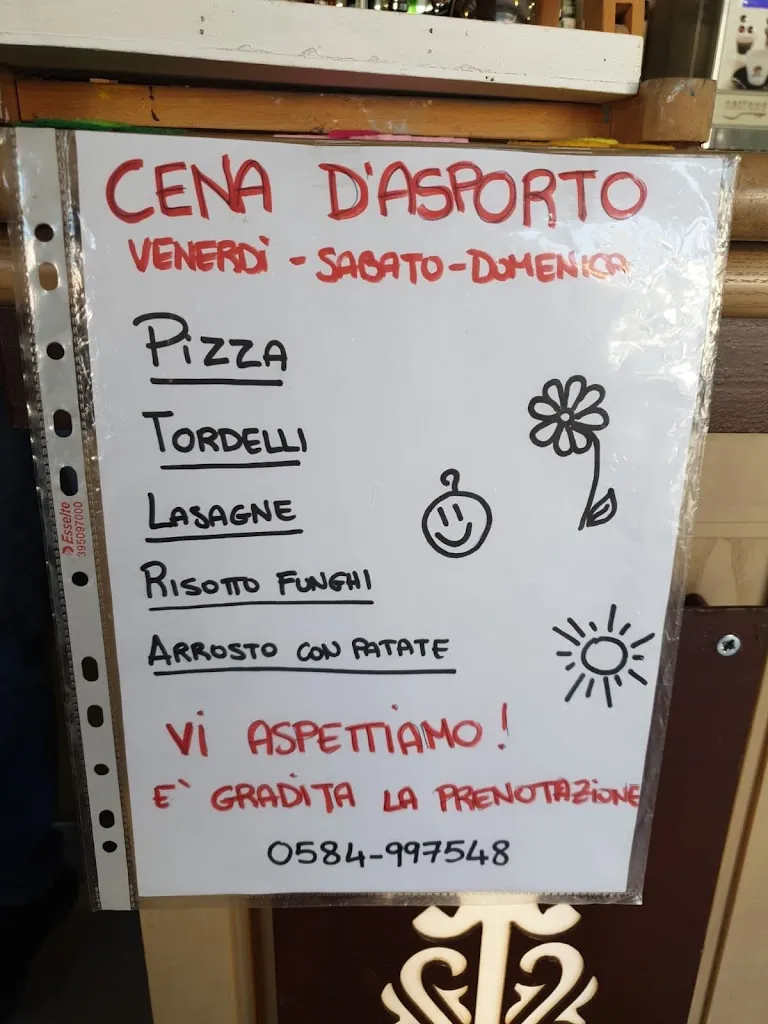 CENA D'ASPORTO
VENERDÌ - SABATO - DOMENICA
PIZZA
TORDELLI
LASAGNE
RISOTTO FUNGHI
ARROSTO CON PATATE
VI ASPETTIAMO!
E` GRADITA LA PRENOTAZIONE
0584-997548
Esselte
395097000